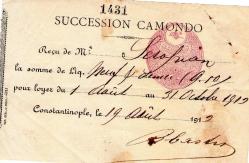 1431
SUCCESSION CAMONDO
Reçu de Mr.
la somme de Ltq. Neuf & demie (9.50)
pour loyer du 1 Août au 31 Octobre 1912
Constantinople, le 19 Août 1912